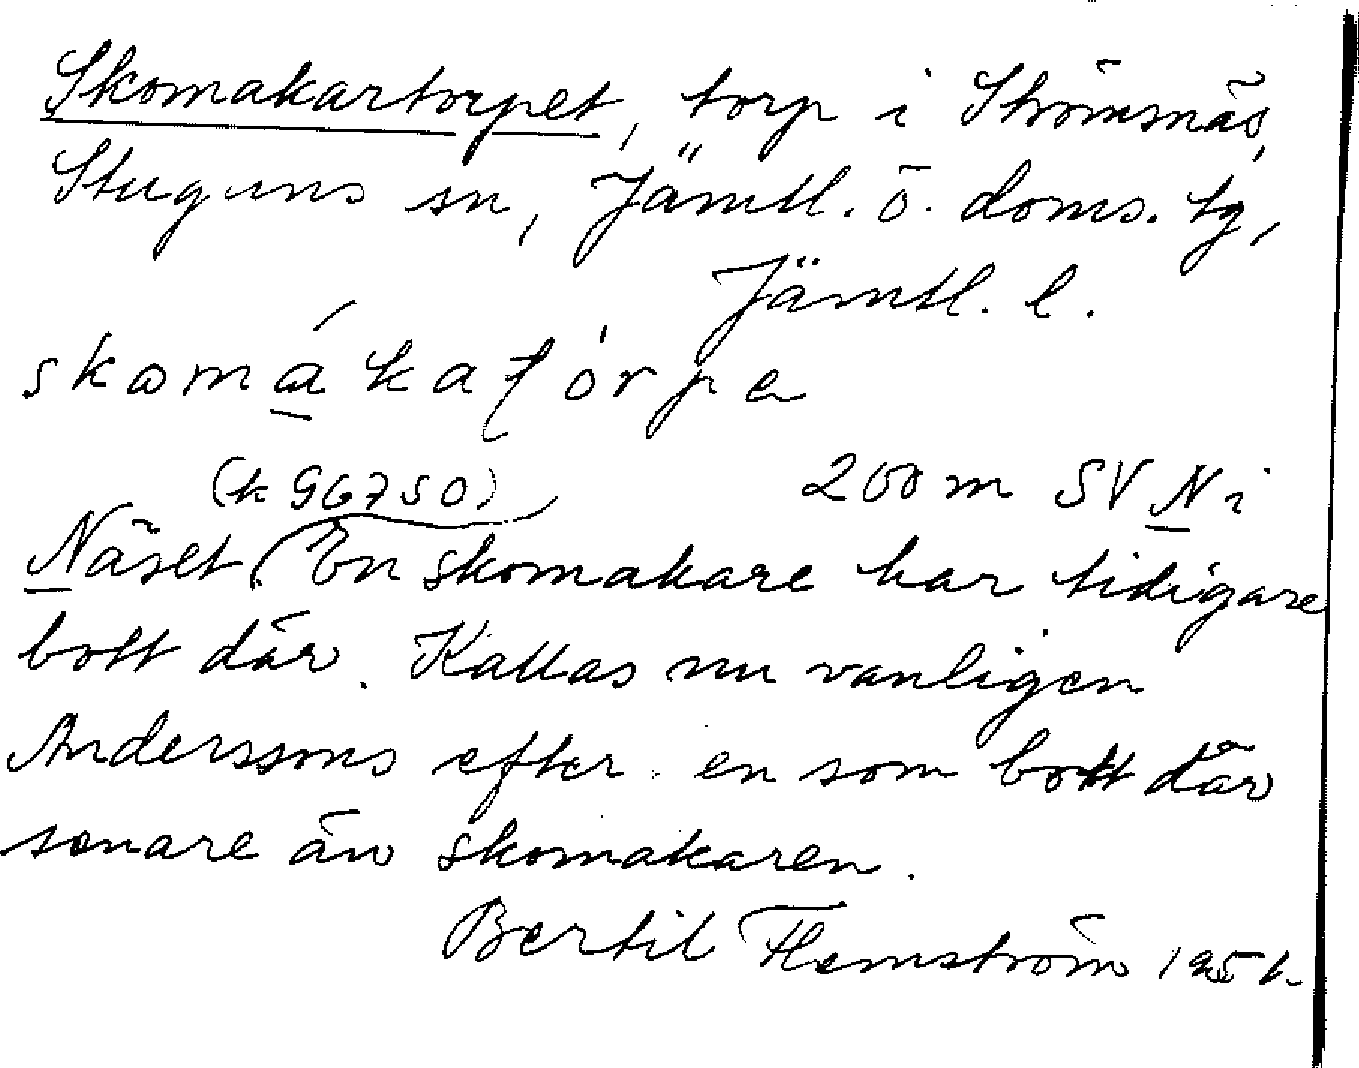 Skomakartorpet, torp i Strömnäs,
Stuguns sn, Jämtl. ö. doms. tg,
Jämtl. l.
skomákatórpe
(k G6750) 200 m SV N i
Näset. En skomakare har tidigare
bott där. Kallas nu vanligen
Anderssons efter en som bott där
senare än skomakaren.
Bertil Flemström